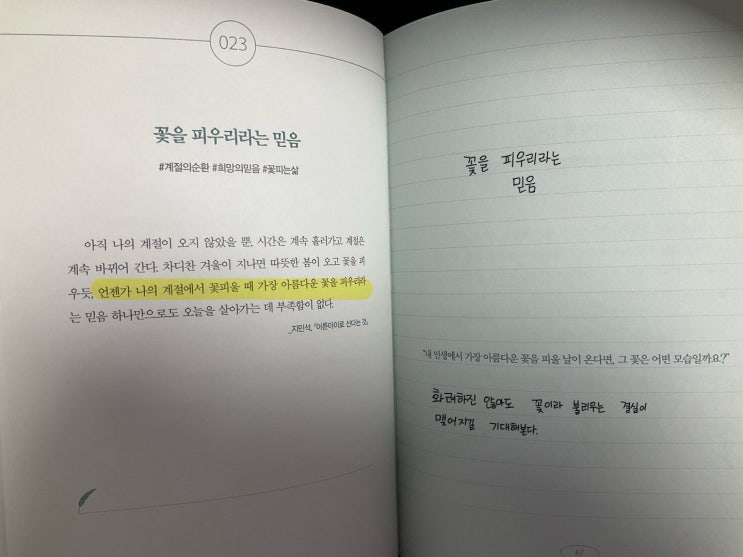 023
꽃을 피우리라는 믿음
#계절의순환 #희망의믿음 #꽃피는삶
아직 나의 계절이 오지 않았을 뿐, 시간은 계속 흘러가고 계절은
계속 바뀌어 간다. 차디찬 겨울이 지나면 따뜻한 봄이 오고 꽃을 피
우듯, 언젠가 나의 계절에서 꽃피울 때 가장 아름다운 꽃을 피우리라
는 믿음 하나만으로도 오늘을 살아가는 데 부족함이 없다.
_지민석, 『어른아이로 산다는 것』
꽃을 피우리라는
믿음
"내 인생에서 가장 아름다운 꽃을 피울 날이 온다면, 그 꽃은 어떤 모습일까요?"
화려하진 않아도 꽃이라 불리우는 결실이
맺어지길 기대해본다.
67